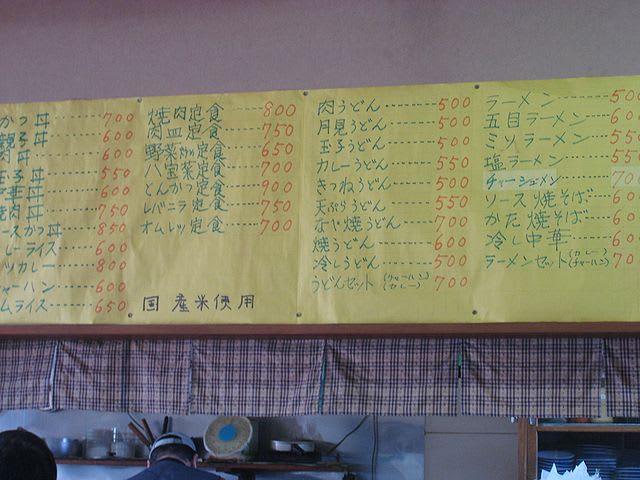 かつ丼 700
親子丼 600
肉丼 600
玉子丼 550
中華丼 600
焼肉丼 750
ースかつ丼 850
レーライス 600
ツカレー 800
ャーハン 600
ムライス 650
焼肉定食 800
肉皿定食 750
野菜炒め定食 650
八宝菜定食 700
とんかつ定食 900
レバニラ定食 750
オムレツ定食 700
国産米使用
肉うどん 500
月見うどん 500
玉子うどん 500
カレーうどん 550
きつねうどん 500
天ぷらうどん 550
なべ焼うどん 700
焼うどん 600
冷しうどん 500
うどんセット(チャーハン)(カレー) 700
ラーメン 500
五目ラーメン 60
ミソラーメン 550
塩ラーメン 550
チャーシューメン 70
ソース焼そば 60
かた焼そば 60
冷し中華 60
ラーメンセット(カレー)(チャーハン) 70